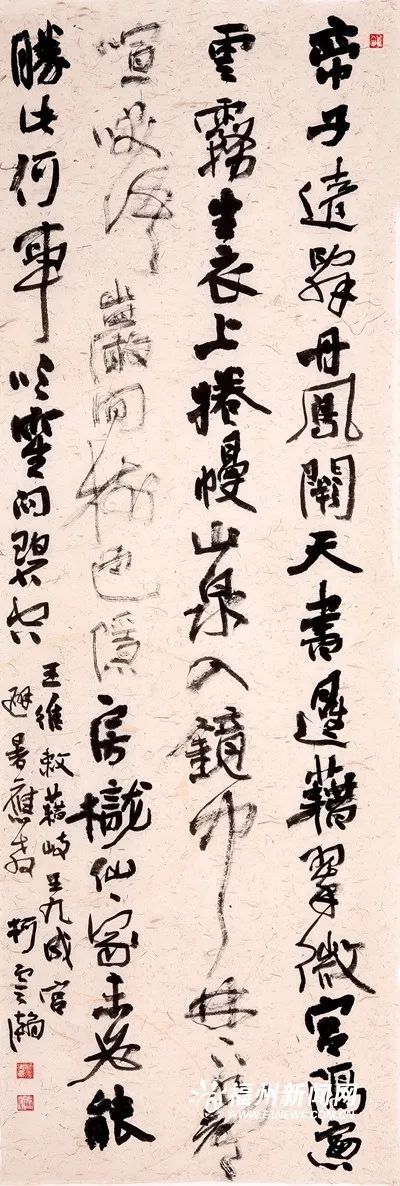 帝子遠辭丹鳳闕天書遥藉翠微宮隔窗
雲霧生衣上捲幔山泉入鏡中林下水聲
喧咲語巖間樹色隱房櫳仙家未必能
勝此何事吹笙向碧空
王維敕藉岐王九成宮
避暑應教 柯雲瀚
福州新闻网
WWW.FZNEWS.COM.CN